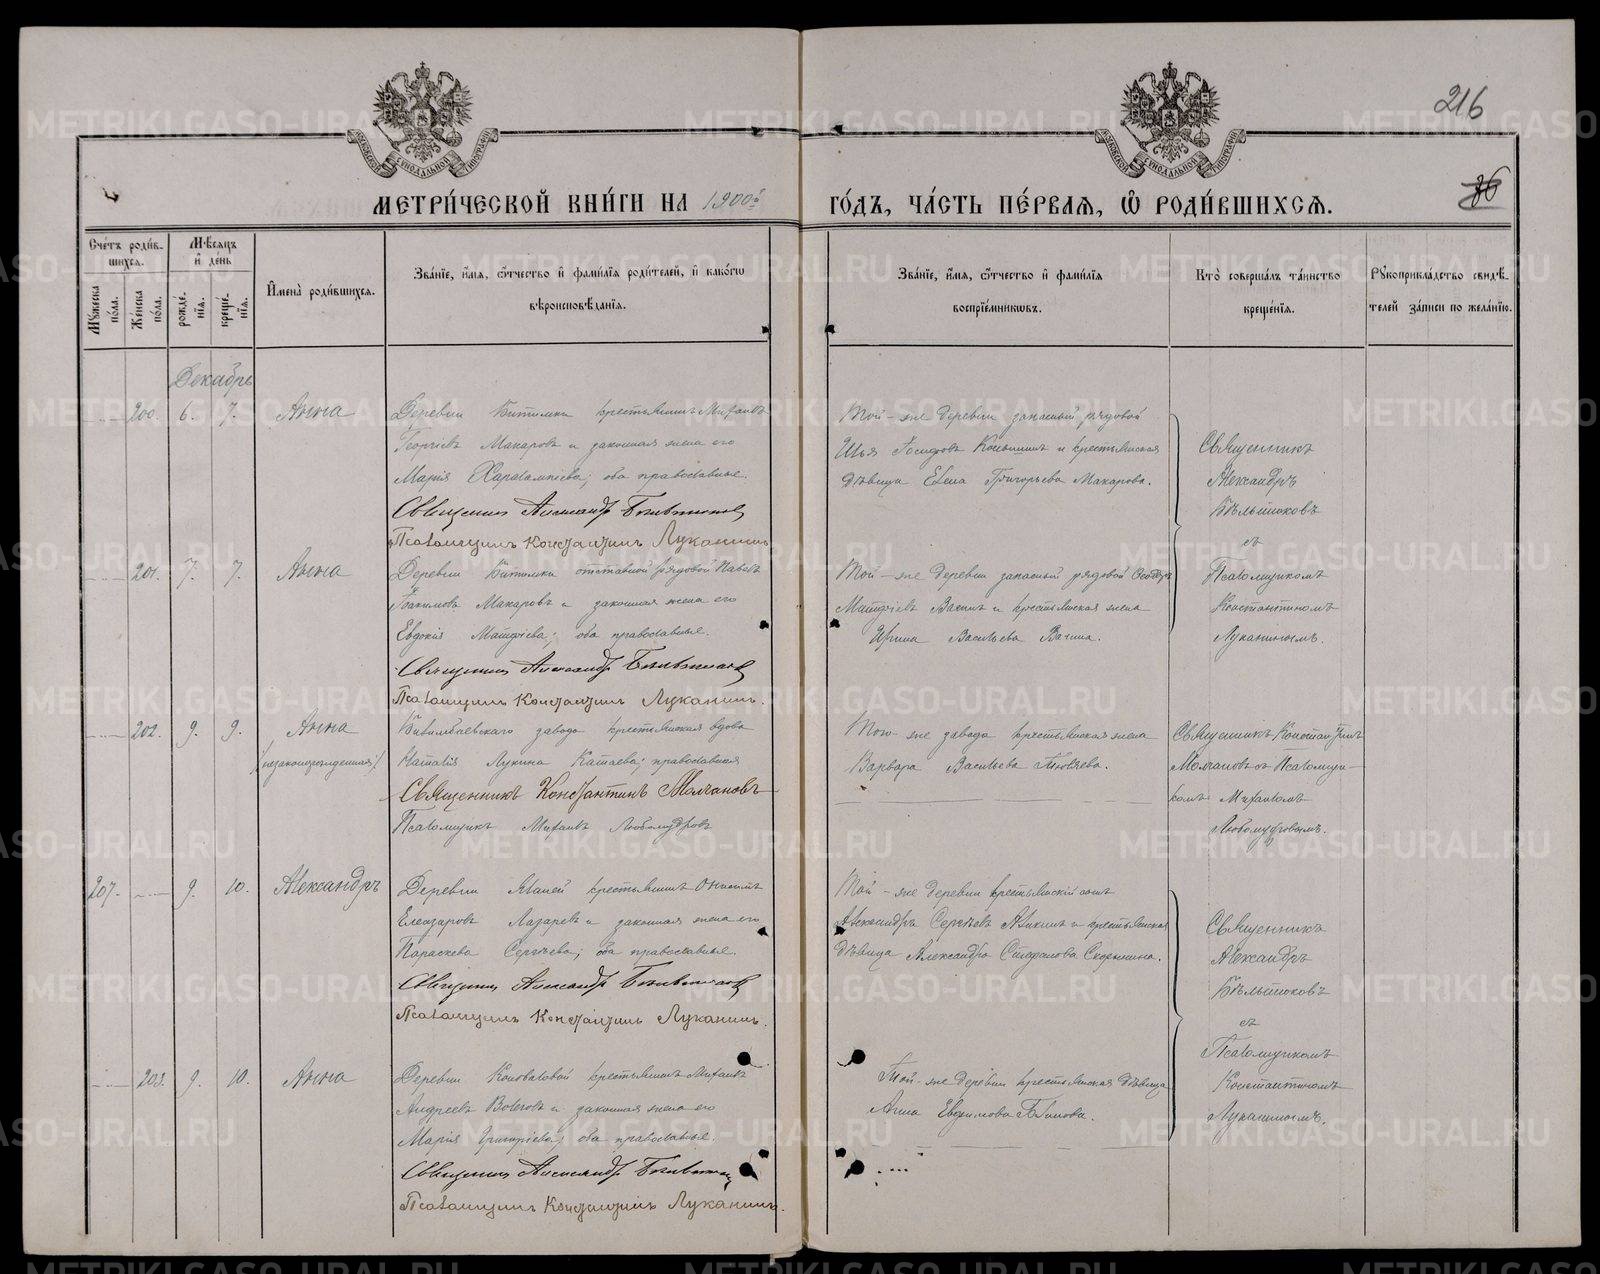 216
86
МЕТРИ́ЧЕСКОЙ КНИ́ГИ НА 1900й
ГО́ДЪ, ЧА́СТЬ ПЕ́РВАЯ, Ѿ РОДИ́ВШИХСЯ.
Счетъ роди́вшихся.
Мѣсяцъ и день
Мужеска пола.
Женска пола.
рожденія.
крещенія.
Имена родившихся.
Званіе, имя, отчество и фамилія родителей, и какого
вѣроисповѣданія.
Званіе, имя, отчество и фамилія
воспріемниковъ.
Кто совершалъ таинство
крещенія.
Рукоприкладство свидѣтелей записи по желанію.
Декабрь
200. 6. 7. Анна
Деревни Битимки крестьянинъ Михаилъ
Георгіевъ Макаровъ и законная жена его
Марія Харалампіева; оба православные.
Священникъ Александръ Бѣльтюковъ
Псаломщикъ Константинъ Луканинъ
Той-же деревни запасный рядовой
Илья Іосифовъ Коньшинъ и крестьянская
дѣвица Елена Григорьева Макарова.
Священникъ
Александръ
Бѣльтюковъ
съ
Псаломщикомъ
Константиномъ
Луканинымъ.
201. 7. 7. Анна
Деревни Битимки отставной рядовой Павелъ
Іоакимовъ Макаровъ и законная жена его
Евдокія Матфіева; оба православные.
Священникъ Александръ Бѣльтюковъ
Псаломщикъ Константинъ Луканинъ.
Той-же деревни запасный рядовой
Матфіевъ и крестьянская жена
Ирина Васильева
202. 9. 9. Анна
/незаконнорожденная/
Билимбаевскаго завода крестьянская вдова
Наталія Лукина Катаева; православная
Священникъ Константинъ Молчановъ
Псаломщикъ Михаилъ Любомудровъ
Того-же завода крестьянская жена
Варвара Васильева
Священникъ Константинъ
Молчановъ съ Псаломщи-
комъ Михаиломъ
Любомудровымъ.
207. 9. 10. Александръ
Деревни крестьянинъ Онисимъ
Елеазаровъ Лазаревъ и законная жена его
Параскева Сергѣева; оба православные.
Священникъ Александръ Бѣльтюковъ
Псаломщикъ Константинъ Луканинъ.
Той-же деревни крестьянскій сынъ
Александръ Сергѣевъ и крестьянская
дѣвица Александра
Священникъ
Александръ
Бѣльтюковъ
съ
Псаломщикомъ
Константиномъ
Луканинымъ.
203. 9. 10. Анна
Деревни Коноваловой крестьянинъ Михаилъ
Андреевъ и законная жена его
Марія Григоріева; оба православные.
Священникъ Александръ Бѣльтюковъ
Псаломщикъ Константинъ Луканинъ.
Той-же деревни крестьянская дѣвица
Анна Евфимова
METRIKI.GASO-URAL.RU